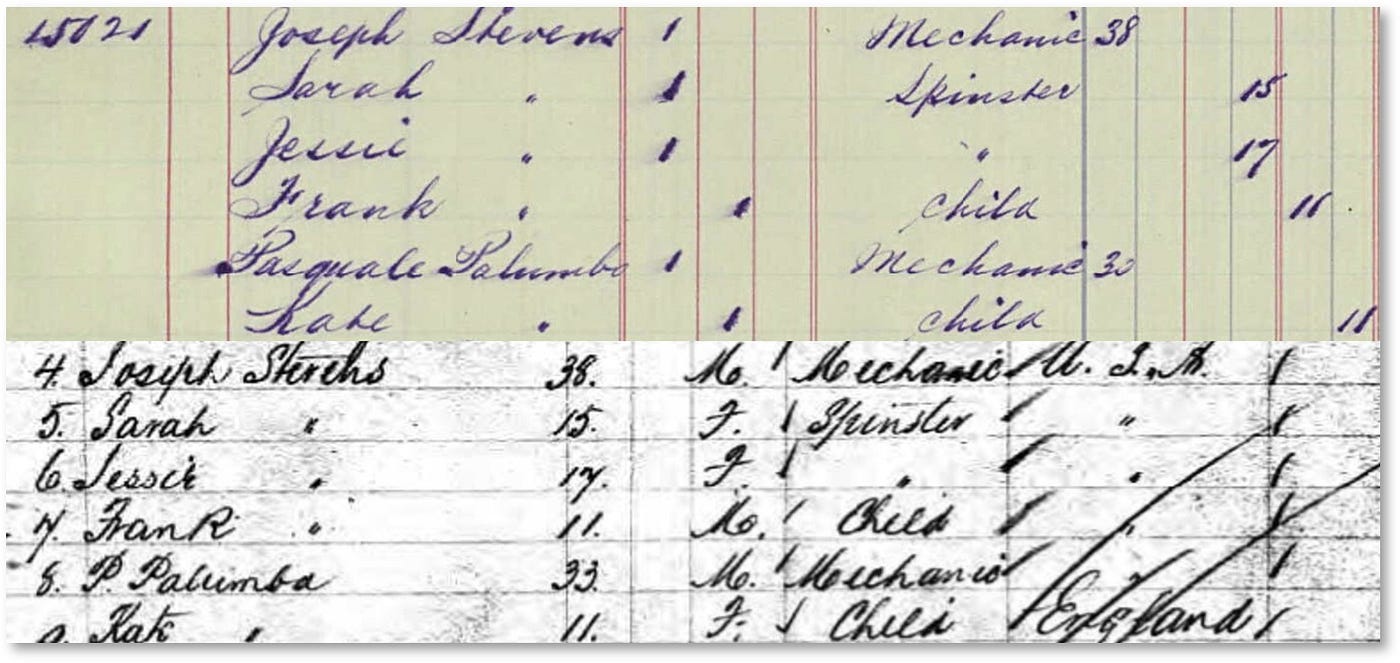 15021 Joseph Stevens 1 Mechanic 38
Sarah " 1 Spinster 15
Jessie " 1 " 17
Frank " 1 Child 11
Pasquale Palumbo 1 Mechanic 33
Kate " 1 Child 11
4. Joseph Stevens 38. M. 1 Mechanic U. S. A. 1
5. Sarah " 15. F. 1 Spinster " 1
6. Jessie " 17. F. 1 " " 1
7. Frank " 11. M. 1 Child " 1
8. P. Palumba 33. M. 1 Mechanic 1
Kate " 11. F. 1 Child England 1